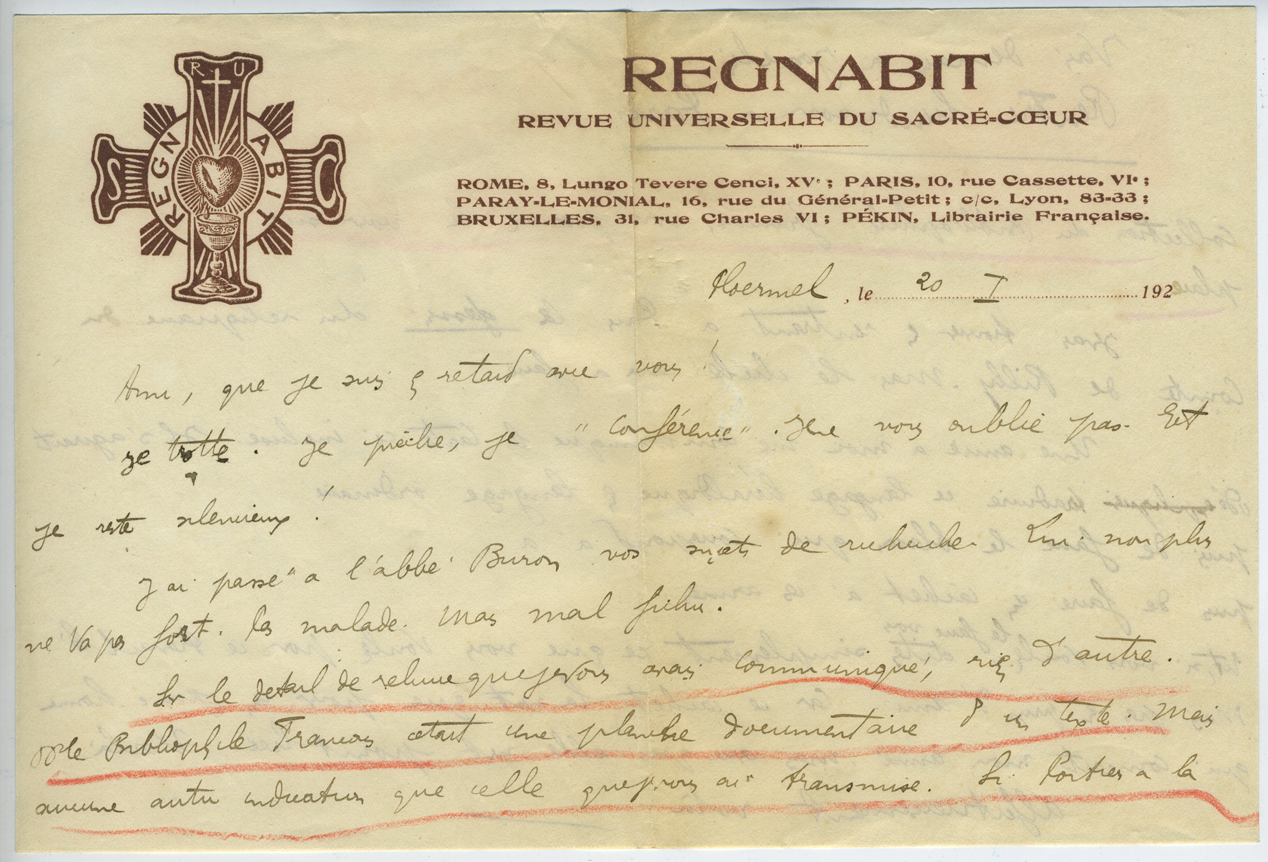 RU
REGNABIT
S C
REGNABIT
REVUE UNIVERSELLE DU SACRÉ-CŒUR
ROME, 8, Lungo Tevere Cenci, XVᵉ ; PARIS, 10, rue Cassette, VIᵉ ;
PARAY-LE-MONIAL, 16, rue du Général-Petit ; c/c, Lyon, 83-33 ;
BRUXELLES, 31, rue Charles VI ; PÉKIN, Librairie Française.
Ploermel, le 20 I 192
Ami, que je suis retard avec vous !
Je trotte. Je prêche, je "conférence". Je ne vous oublie pas. Et
je reste silencieux !
J'ai passé à l'abbé Buron vos sujets de recherche. Lui non plus
ne va pas fort. Pas malade. Mais mal fichu.
Sur le détail de reliure que je vous avais communiqué, d'autre.
Bibliophile Français c'était une planche documentaire texte. Mais
aucune autre indication que celle que je vous ai transmise. Si Portier a la